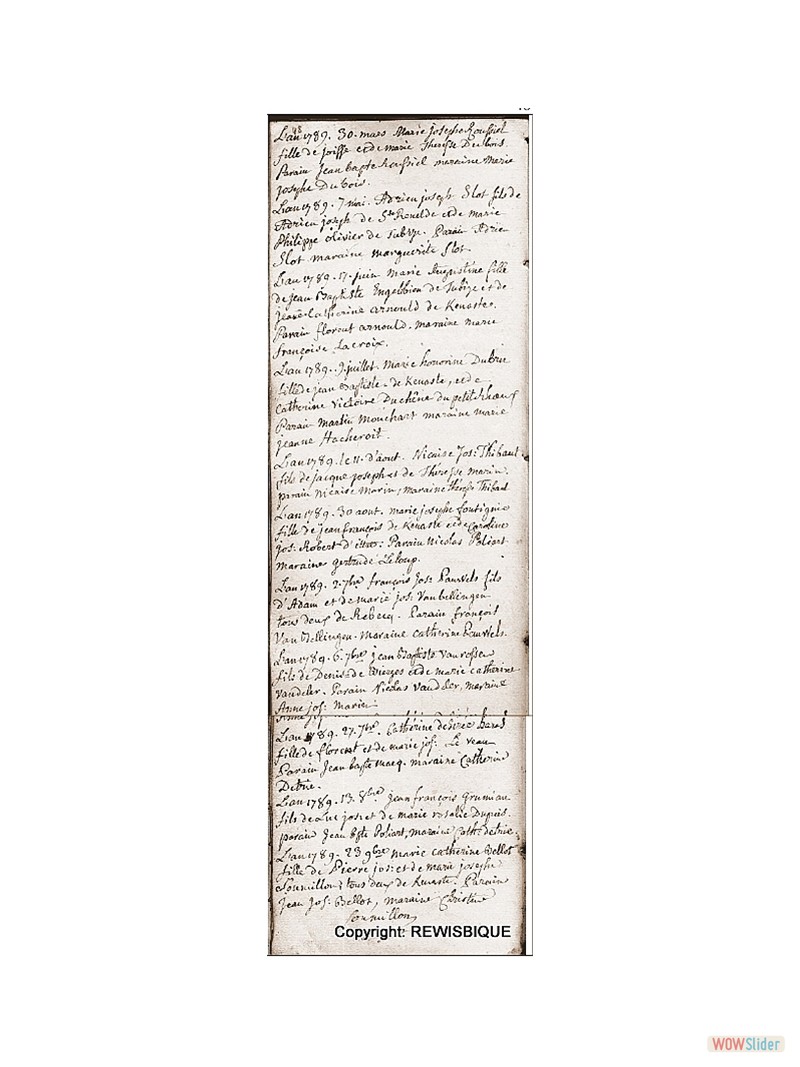 L'an 1789. 30. mars Marie Joseph Roussiel
fille de Joisse et de marie Therese Du bois.
Parain Jean bapte Roussiel maraine Marie
Josephe Du bois.
L'an 1789. 7 mai. Adrien joseph Slot fils de
Adrien joseph de Ste Renelde et de marie
Philippe olivier de Tubize. Parain Adrien
Slot maraine marguerite Slot.
L'an 1789. 17. juin marie Augustine fille
de jean Baptiste Engelbien de Tubize et de
jeane-Catherine arnould de Kenaste.
Parain florent arnould. maraine marie
françoise Lacroix.
L'an 1789. 9. juillet Marie honorine Dubrue
fille de jean Baptiste de Kenaste, et de
Catherine Victoire Duchêne du petit
Parain Martin Mouchart maraine marie
jeanne Hacheroit.
L'an 1789. le 11. d'aout. Nicaise Jos: Thibaut
fils de jacque joseph et de Therese marin:
parain nicaise Morin, maraine therese Thibaut
L'an 1789. 30 aout. marie josephe foutignie
fille de jean françois de Kenaste et de Caroline
jos: Robert d' : Parain Nicolas Poliart
maraine gertrude Leloup.
L'an 1789. 2. 7bre françois Jos: Pauwels fils
d'Adam et de marie jos: Vanbellingen
tous deux de Rebecq. Parain françois
Van Bellingen. maraine catherine Pauwels.
L'an 1789. 6. 7bre jean Baptiste vanrossem
fils de Denis de Bierges et de marie catherine
vaudeler. Parain Nicolas vaudeler, maraine
Anne jos: marie
L'an 1789. 27. 7bre. Catherine desirée
fille de florent et de marie jos: Le veau
Parain Jean bapte macq. maraine Catherine
Debue.
L'an 1789. 13. 8bre jean françois grumiau
fils de Luc jos: et de marie rosalie Dupuis.
parain Jean Bte Poliart, maraine Cath: detrie.
L'an 1789. 23 9bre marie catherine Bellot
fille de Pierre jos: et de marie josephe
Soumillon; tous deux de Kenaste. Parain
Jean Jos: Bellot, maraine Christine
Soumillon
Copyright: REWISBIQUE
WOWSlider